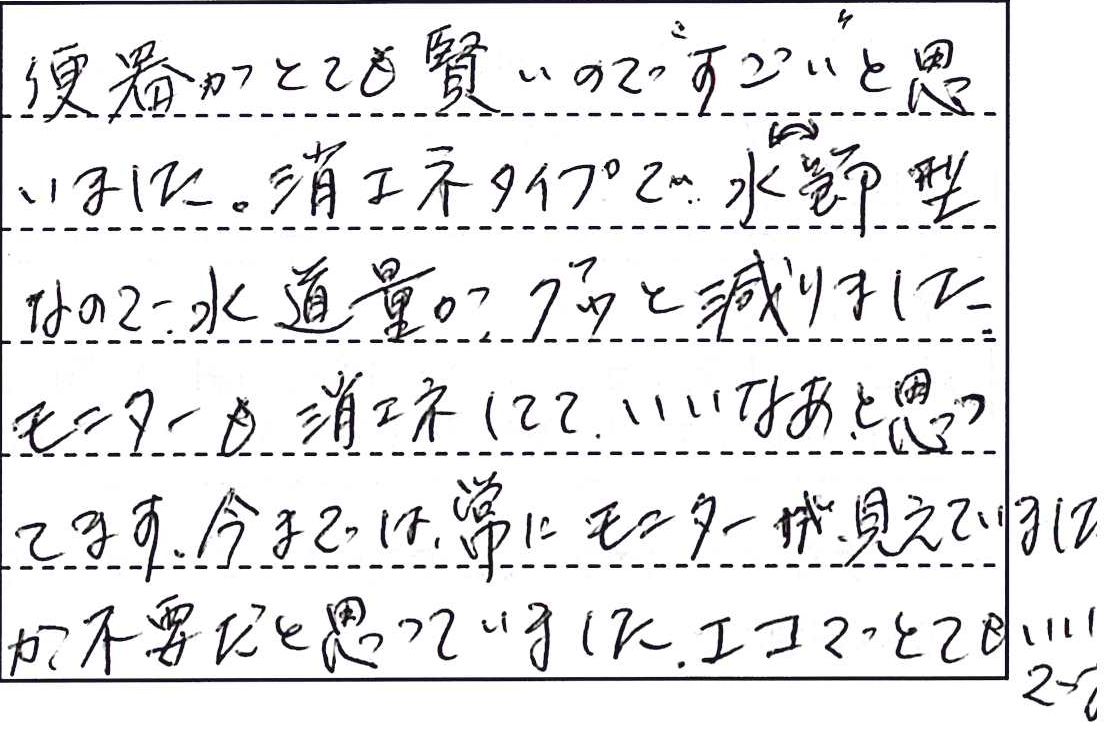 便器がとても賢いので"すごい"と思
いました。消エネタイプで水節型
なので水道量がグッと減りました
モニターも消エネしてて、いいなあと思っ
てます。今までは、常にモニターが見えていました
が不要だと思っていました。エコでとてもいい
です